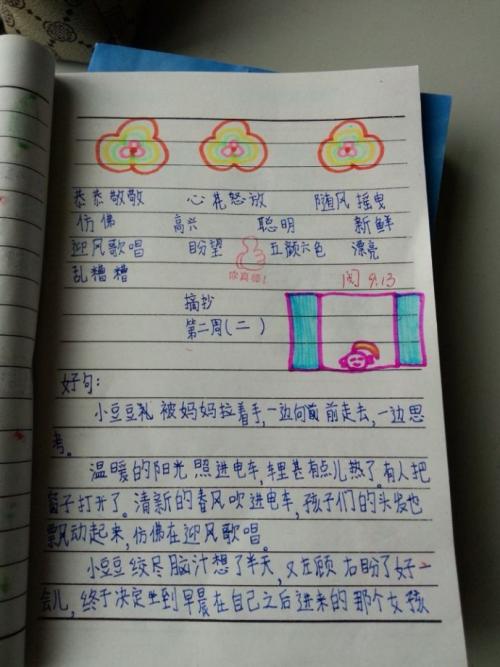 恭恭敬敬 心花怒放 随风摇曳
仿佛 高兴 聪明 新鲜
迎风歌唱 盼望 五颜六色 漂亮
你真棒!
乱糟糟 阅 9.13
摘抄
第二周(二)
好句:
小豆豆 被妈妈拉着手,一边向前走去,一边思
考。
温暖的阳光照进电车,车里甚有点儿热了。有人把
窗子打开了。清新的春风吹进电车,孩子们的头发也
飘动起来,仿佛在迎风歌唱。
小豆豆绞尽脑汁想了半天,又左顾右盼了好一
会儿,终于决定坐到早晨在自己之后进来的那个女孩